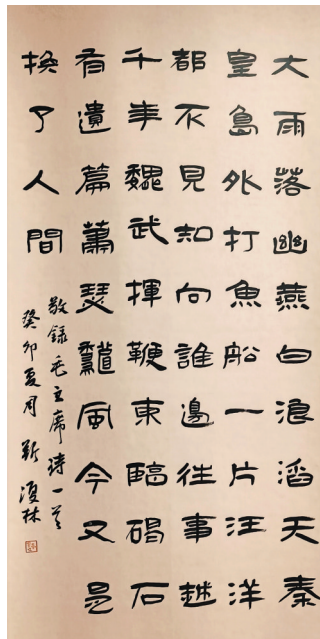 大雨落幽燕白浪滔天秦
皇島外打魚船一片汪洋
都不見知向誰邊往事越
千年魏武揮鞭東臨碣石
有遺篇蕭瑟龝風今又是
換了人間
敬録毛主席詩一首
癸卯夏月靳林